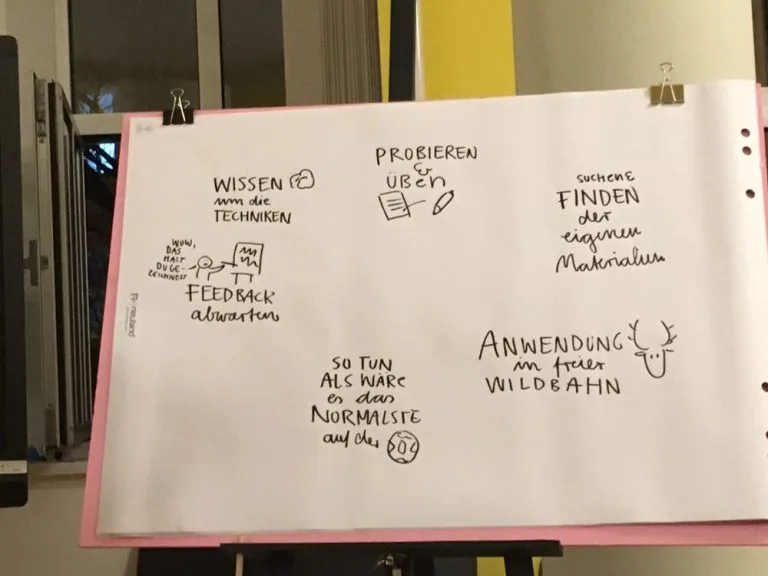 WISSEN
um die
TECHNIKEN
PROBIEREN
&
ÜBEN
SUCHEN &
FINDEN
der
eigenen
Materialien
WOW,
DAS
HAST
DU GE-
ZEICHNET
FEEDBACK
abwarten
ANWENDUNG
in freier
WILDBAHN
SO TUN
ALS WÄRE
es das
NORMALSTE
auf der
neuland